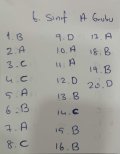 6. Sınıf A Grubu
1. B
2. A
3. C
4. C
5. A
6. B
7. A
8. C
9. D
10. A
11. A
12. D
13. B
14. C
15. B
16. B
17. A
18. B
19. B
20. D